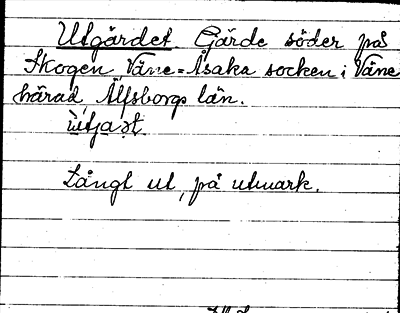 Utgärdet Gärde söder på
Skogen Väne=Åsaka socken i Väne
härad, Älfsborgs län.
Långt ut, på utmark.